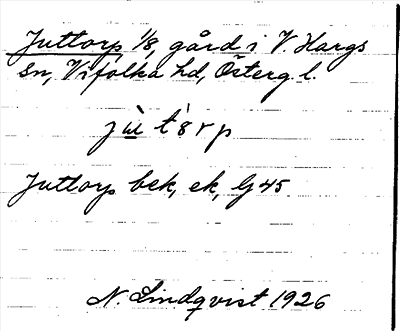 Juttorp 1/8, gård i V. Hargs
sn, Vifolka hd, Österg. l.
jùtårp
Juttorp bek, ek, G 45
N. Lindqvist 1926